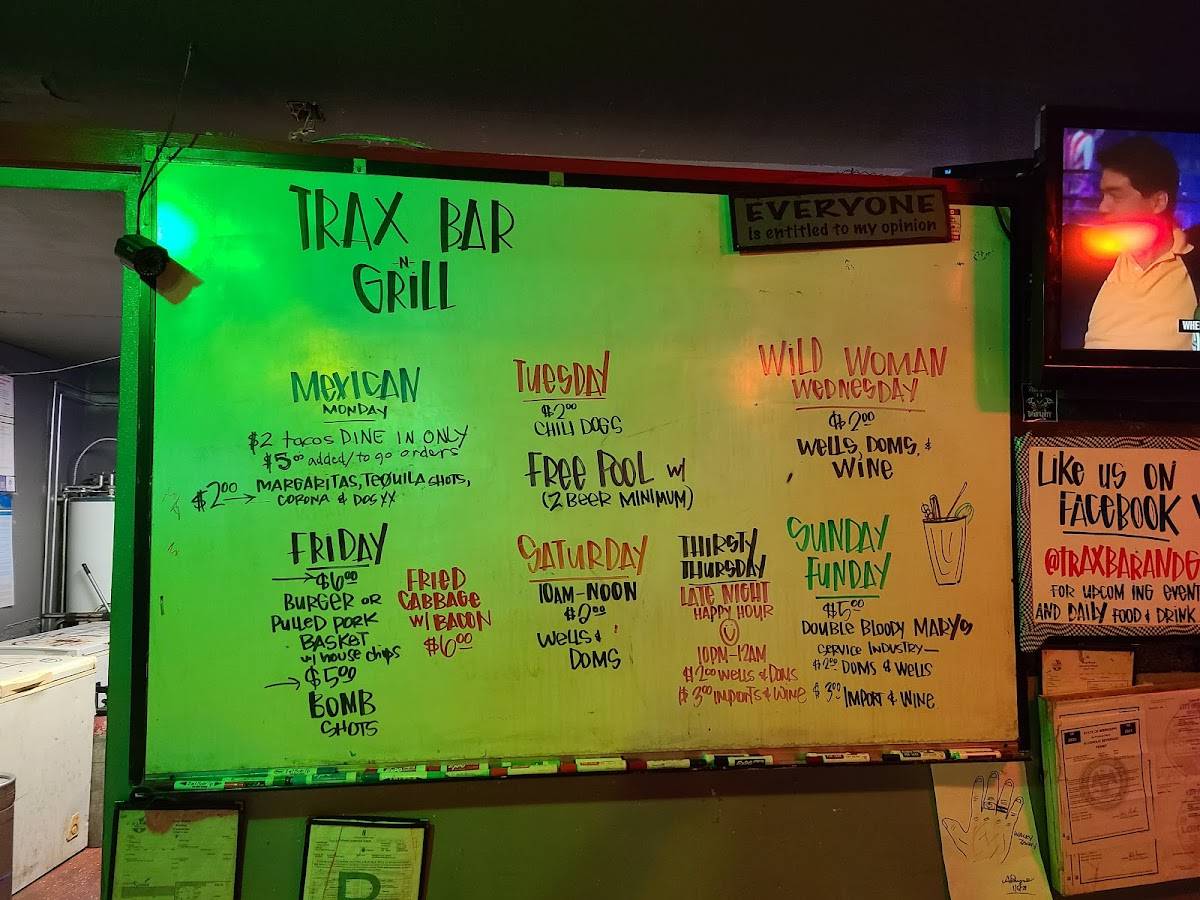 TRAX BAR
-N-
GRILL
EVERYONE
is entitled to my opinion
MEXICAN
MONDAY
$2 tacos DINE IN ONLY
$5.00 added/to go orders
$2.00 → MARGARITAS, TEQUILA SHOTS,
CORONA & DOS XX
TUESDAY
$2.00
CHILI DOGS
FREE POOL w/
(2 BEER MINIMUM)
WILD WOMAN
WEDNESDAY
$2.00
WELLS, DOMS, &
WINE
FRIDAY
→ $6.00
BURGER OR
PULLED PORK
BASKET
w/ house chips
→ $5.00
BOMB
SHOTS
FRIED
CABBAGE
w/ BACON
$6.00
SATURDAY
10AM-NOON
$2.00
WELLS &
DOMS
THIRSTY
THURSDAY
LATE NIGHT
HAPPY HOUR
10PM-12AM
$2.00 WELLS & DOMS
$3.00 IMPORTS & WINE
SUNDAY
FUNDAY
$5.00
DOUBLE BLOODY MARYS
SERVICE INDUSTRY—
$2.00 DOMS & WELLS
$3.00 IMPORT & WINE
WHE
LIKE US ON
FACEBOOK
@TRAXBARANDG
FOR UPCOMING EVENT
AND DAILY FOOD & DRINK